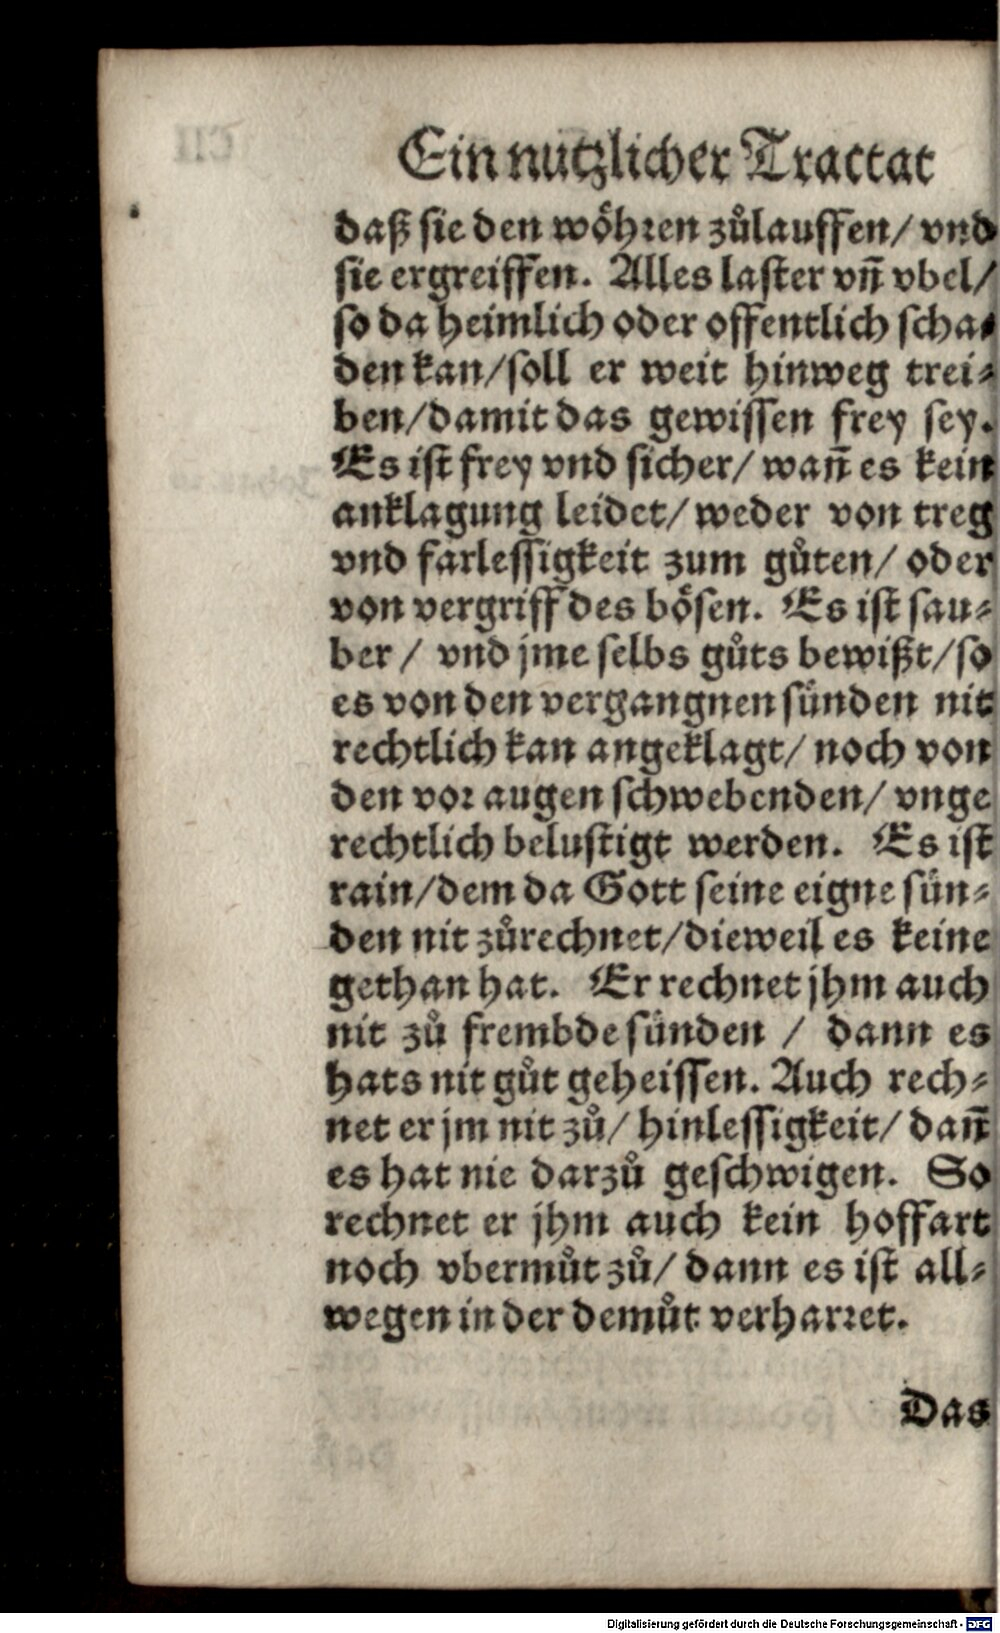 Ein nutzlicher Tractat
daß sie den wöhren zůlauffen/ vnd
sie ergreiffen. Alles laster vñ vbel/
so da heimlich oder offentlich scha-
den kan/soll er weit hinweg trei-
ben/damit das gewissen frey sey.
Es ist frey vnd sicher/ wañ es kein
anklagung leidet/ weder von treg
vnd farlessigkeit zum gůten/ oder
von vergriff des bösen. Es ist sau-
ber / vnd jme selbs gůts bewißt/so
es von den vergangnen sünden nit
rechtlich kan angeklagt/ noch von
den vor augen schwebenden/ vnge
rechtlich belustigt werden. Es ist
rain/dem da Gott seine eigne sün-
den nit zůrechnet/dieweil es keine
gethan hat. Er rechnet jhm auch
nit zů frembde sünden / dann es
hats nit gůt geheissen. Auch rech-
net er jm nit zů/ hinlessigkeit/ dañ
es hat nie darzů geschwigen. So
rechnet er jhm auch kein hoffart
noch vbermůt zů/ dann es ist all-
wegen in der demůt verharret.
Das
Digitalisierung gefördert durch die Deutsche Forschungsgemeinschaft - DFG